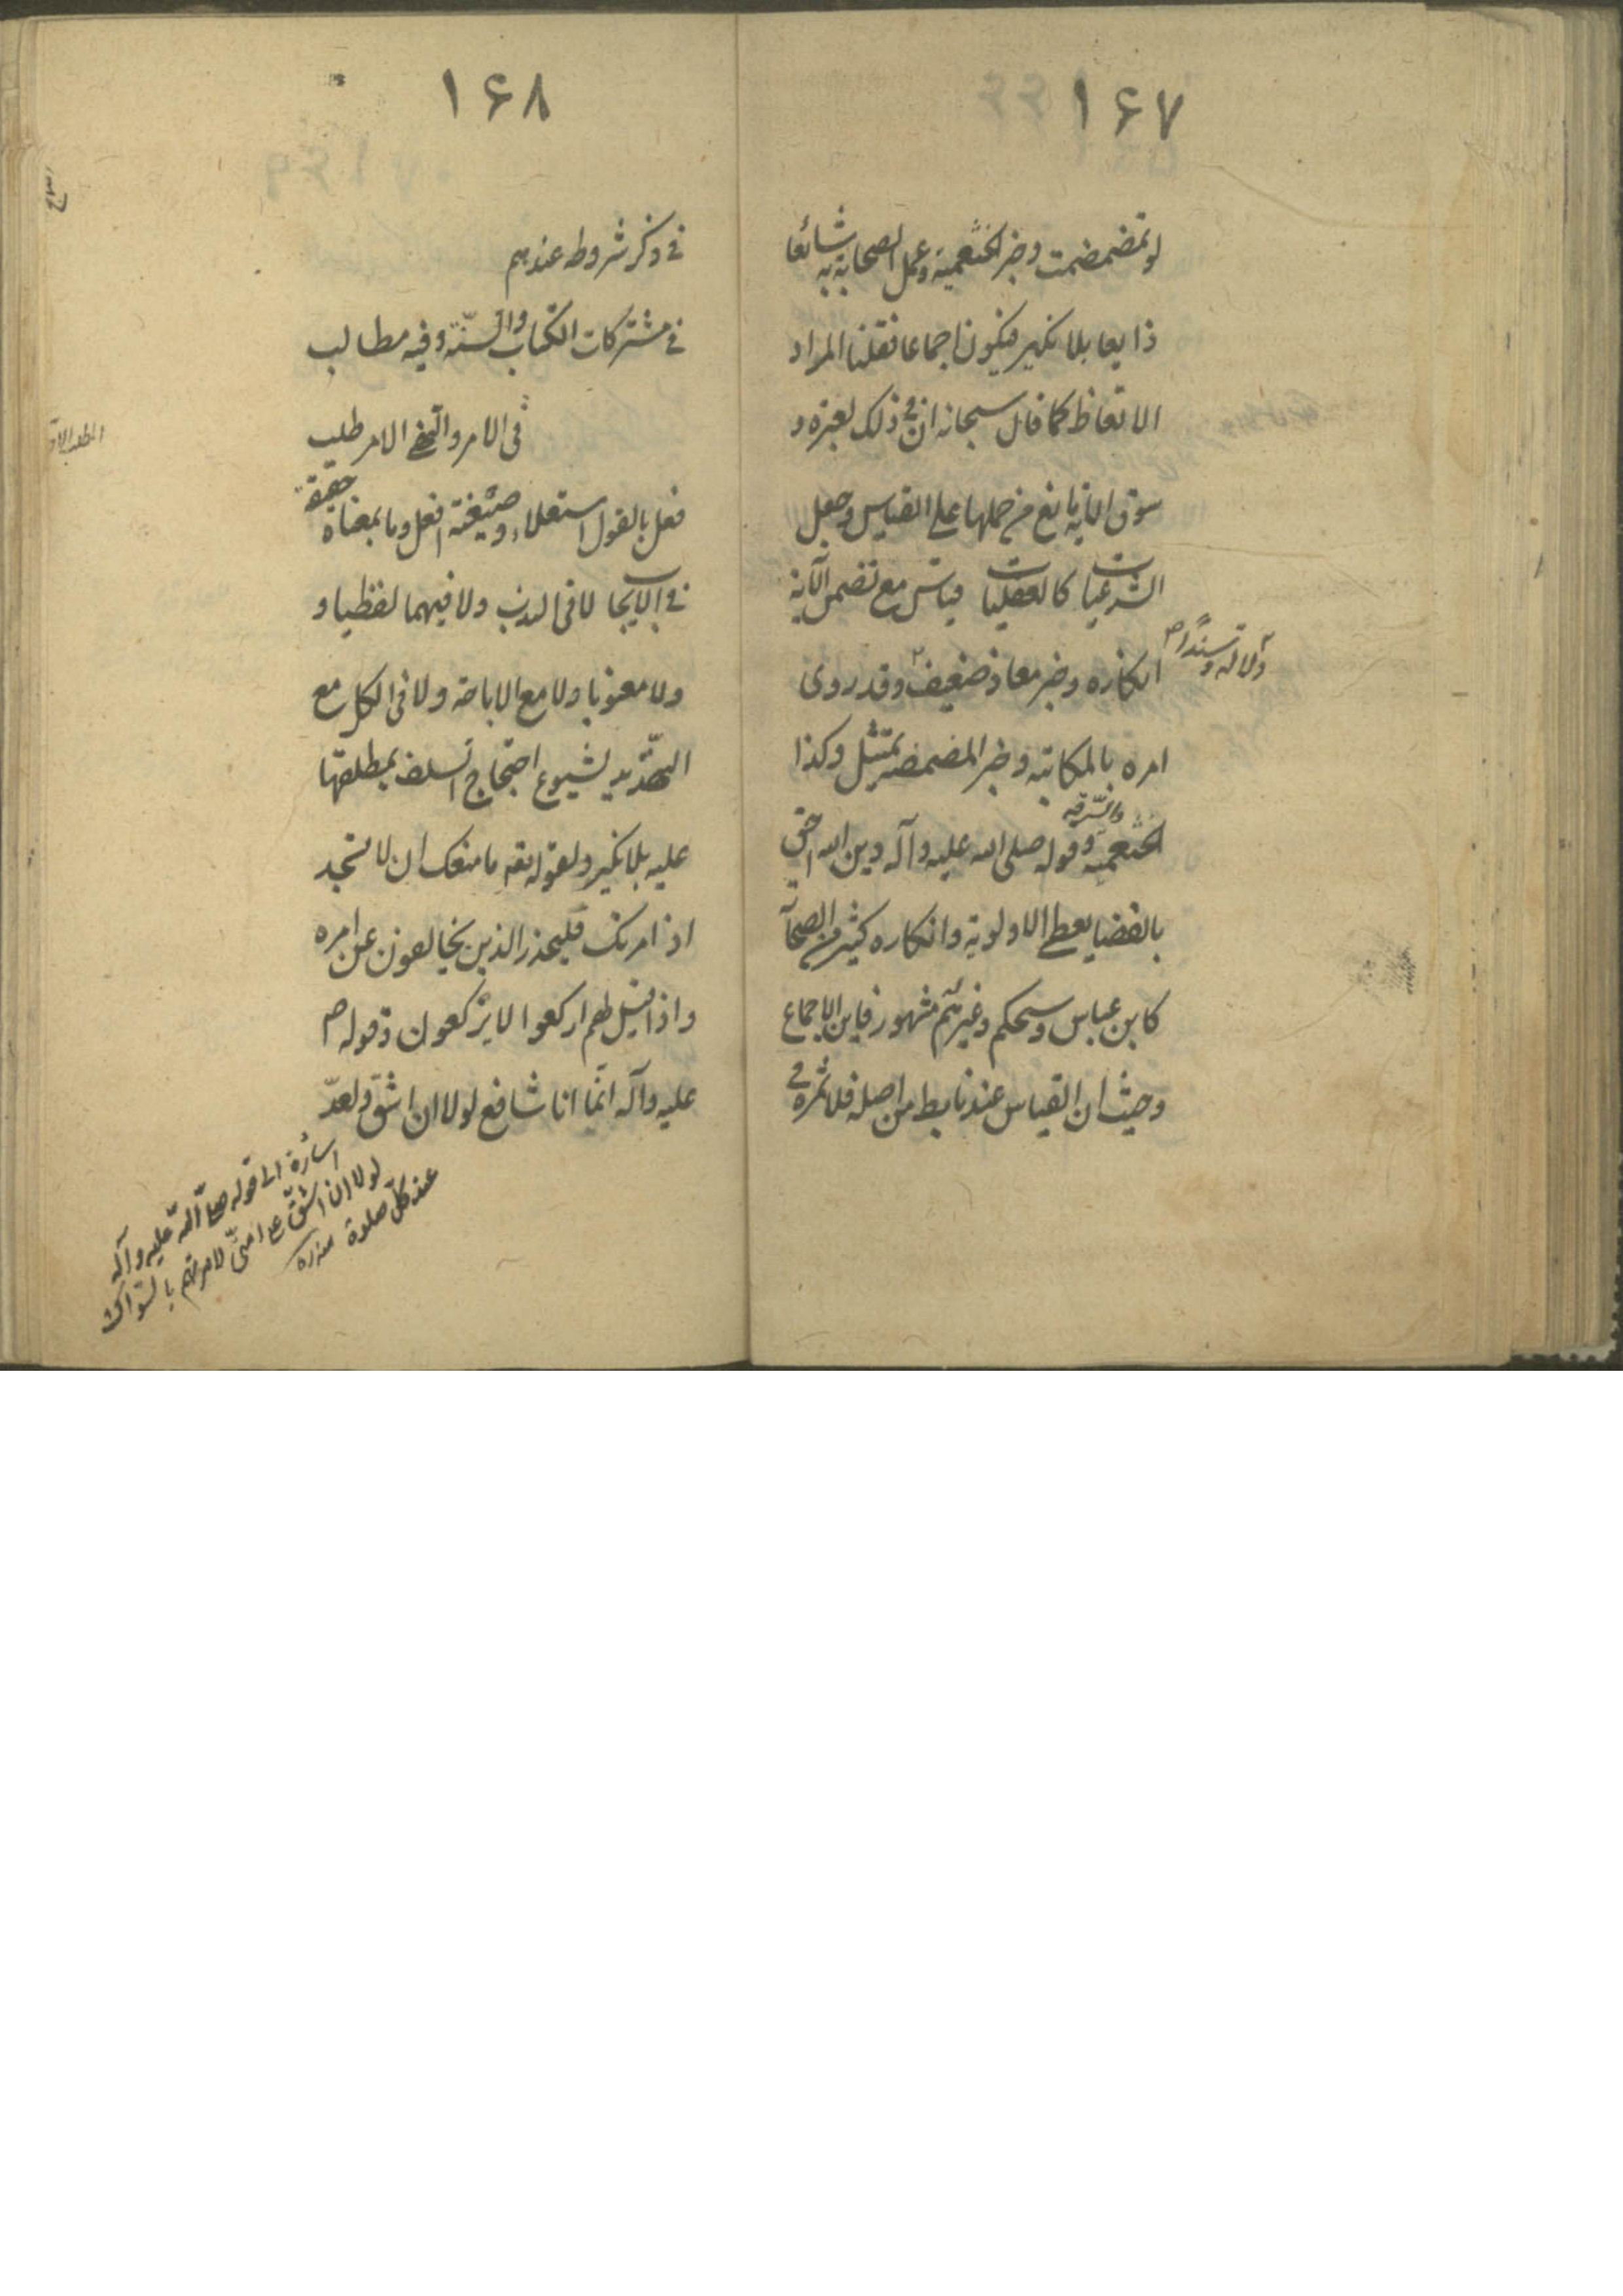 ١۶٧
لو تمضمضت وخبر الخثعمية وعمل الصحابة به شائعا
ذايعا بلا نكير فيكون اجماعا فقلنا المراد
الاتعاظ كما قال سبحانه ان في ذلك لعبرة و
سوق الاية مانع من حملها على القياس وجعل
الشرعيات كالعقليات قياس مع تضمن الآية
دلالة وسندا ص
انكاره وخبر معاذ ضعيف وقد روى
امره بالمكاتبة وخبر المضمضة تمثيل وكذا
الخثعمية والسرقة وقوله صلى الله عليه وآله دين الله احق
بالقضا يعطى الاولوية وانكاره كثير من الصحابة
كابن عباس ومسحكم وغيرهم مشهور فاين الاجماع
وحيث ان القياس عندنا يط من اصله فلا ثمرة في
١۶٨
في ذكر شروطه عندهم
في مشتركات الكتاب والسنة وفيه مطالب
المطلب الاول
في الامر والنهى الامر طلب
فعل بالقول استعلاء وصيغته افعل وما بمعناه حقيقة
في الايجاب لا في الندب ولا فيهما لفظيا و
ولا معنويا ولا مع الاباحة ولا في الكل مع
التهديد لشيوع احتجاج السلف بمطلقها
عليه بلا نكير ولقوله تعه ما منعك ان لا تسجد
اذ امرتك فليحذر الذين يخالفون عن امره
واذا قيل لهم اركعوا لا يركعون وقوله ص
عليه وآله انما انا شافع لولا ان اشق ولعد
اشارة الى قوله صلى الله عليه وآله
لولا ان اشق على امتى لامرتهم بالسواك
عند كل صلوة منه ره